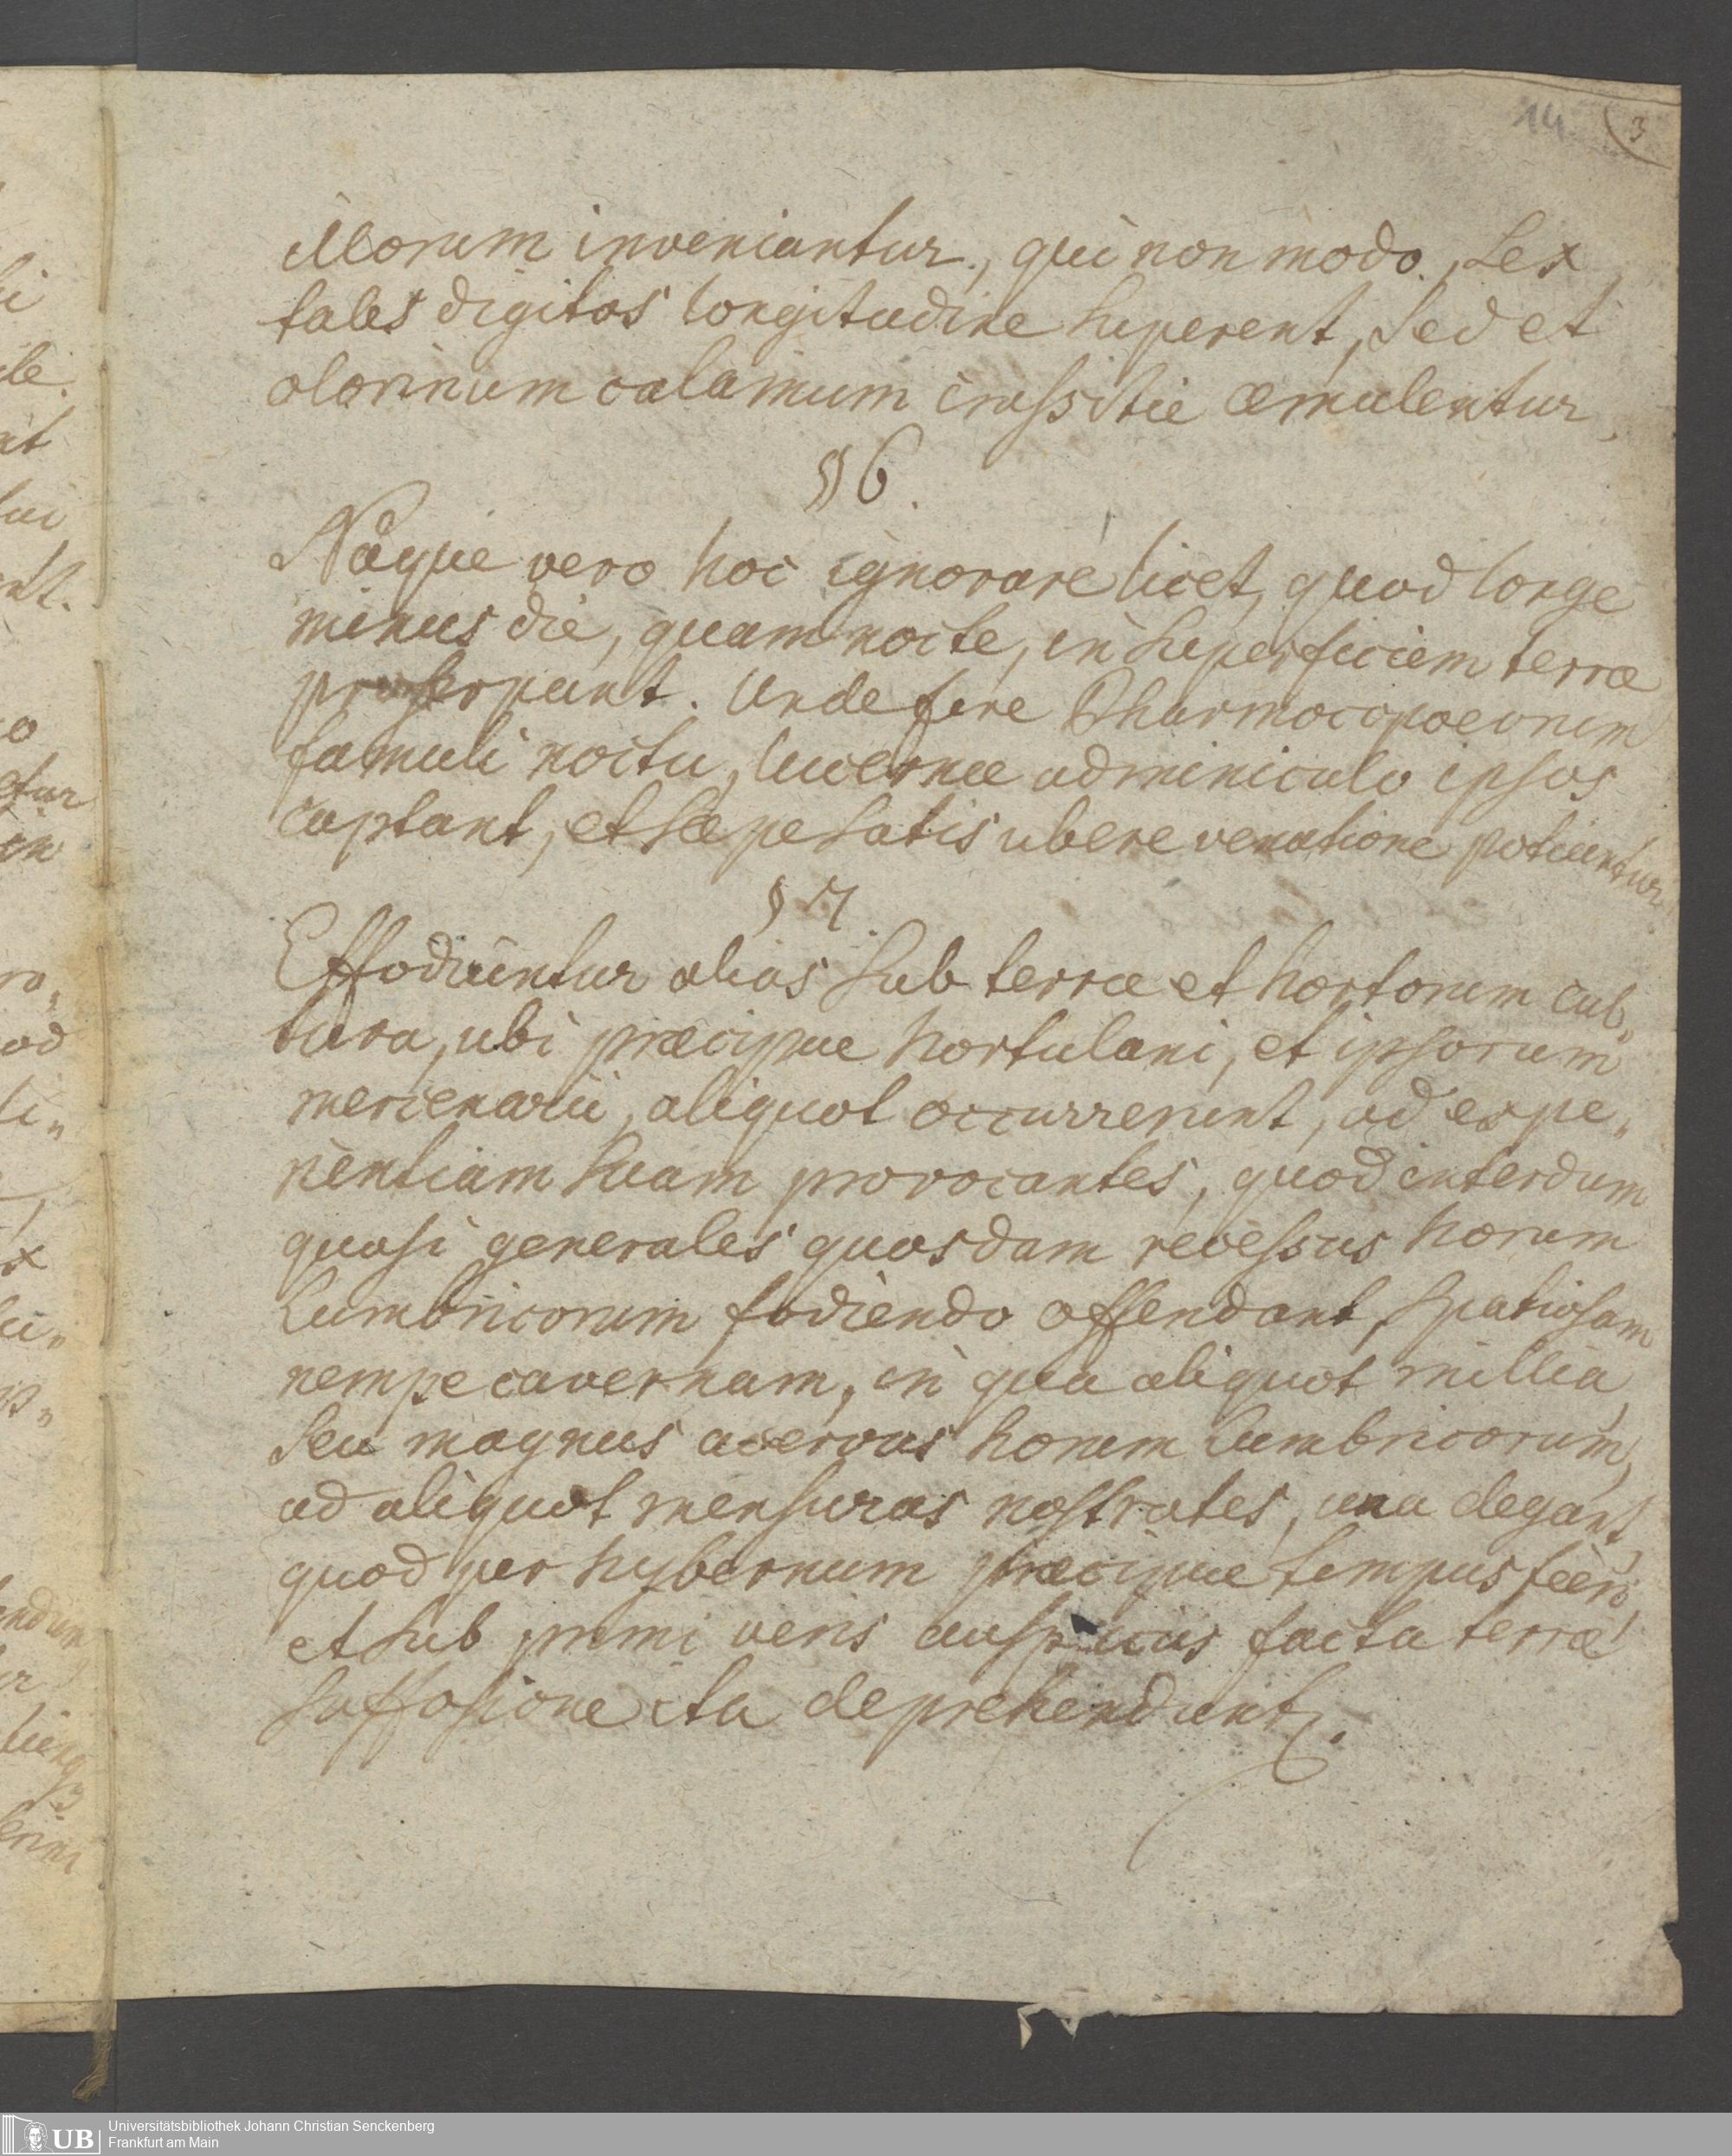 14 3
illorum inveniantur, qui non modo, sex
tales digitos longitudine superent, sed et
olorinum calamum crassitie æmulentur,
§ 6.
Neque vero hoc ignorare licet, quod longe
minus die, quam nocte, in superficiem terræ
proserpant. Unde fere Pharmocopoeorum
famuli noctu, lucernæ adminiculo ipsos
captant, et sæpe satis ubere venatione potiuntur
§ 7.
Effodiuntur alias sub terræ et hortorum cul„
tura, ubi præcipue hortulani, et ipsorum
mercenarii, aliquot occurrerunt, ad expe„
rientiam suam provocantes, quod interdum
quasi generales quosdam recessus horum
Lumbricorum fodiendo offendant, spatiosam
nempe cavernam, in qua aliquot millia,
seu magnus acervus horum Lumbricorum,
ad aliquot mensuras nostrates, una degant,
quod per hybernum præcipue tempus fieri,
et sub primi veris auspiciis facta terræ
suffosione ita deprehendunt.
Universitätsbibliothek Johann Christian Senckenberg
Frankfurt am Main
UB